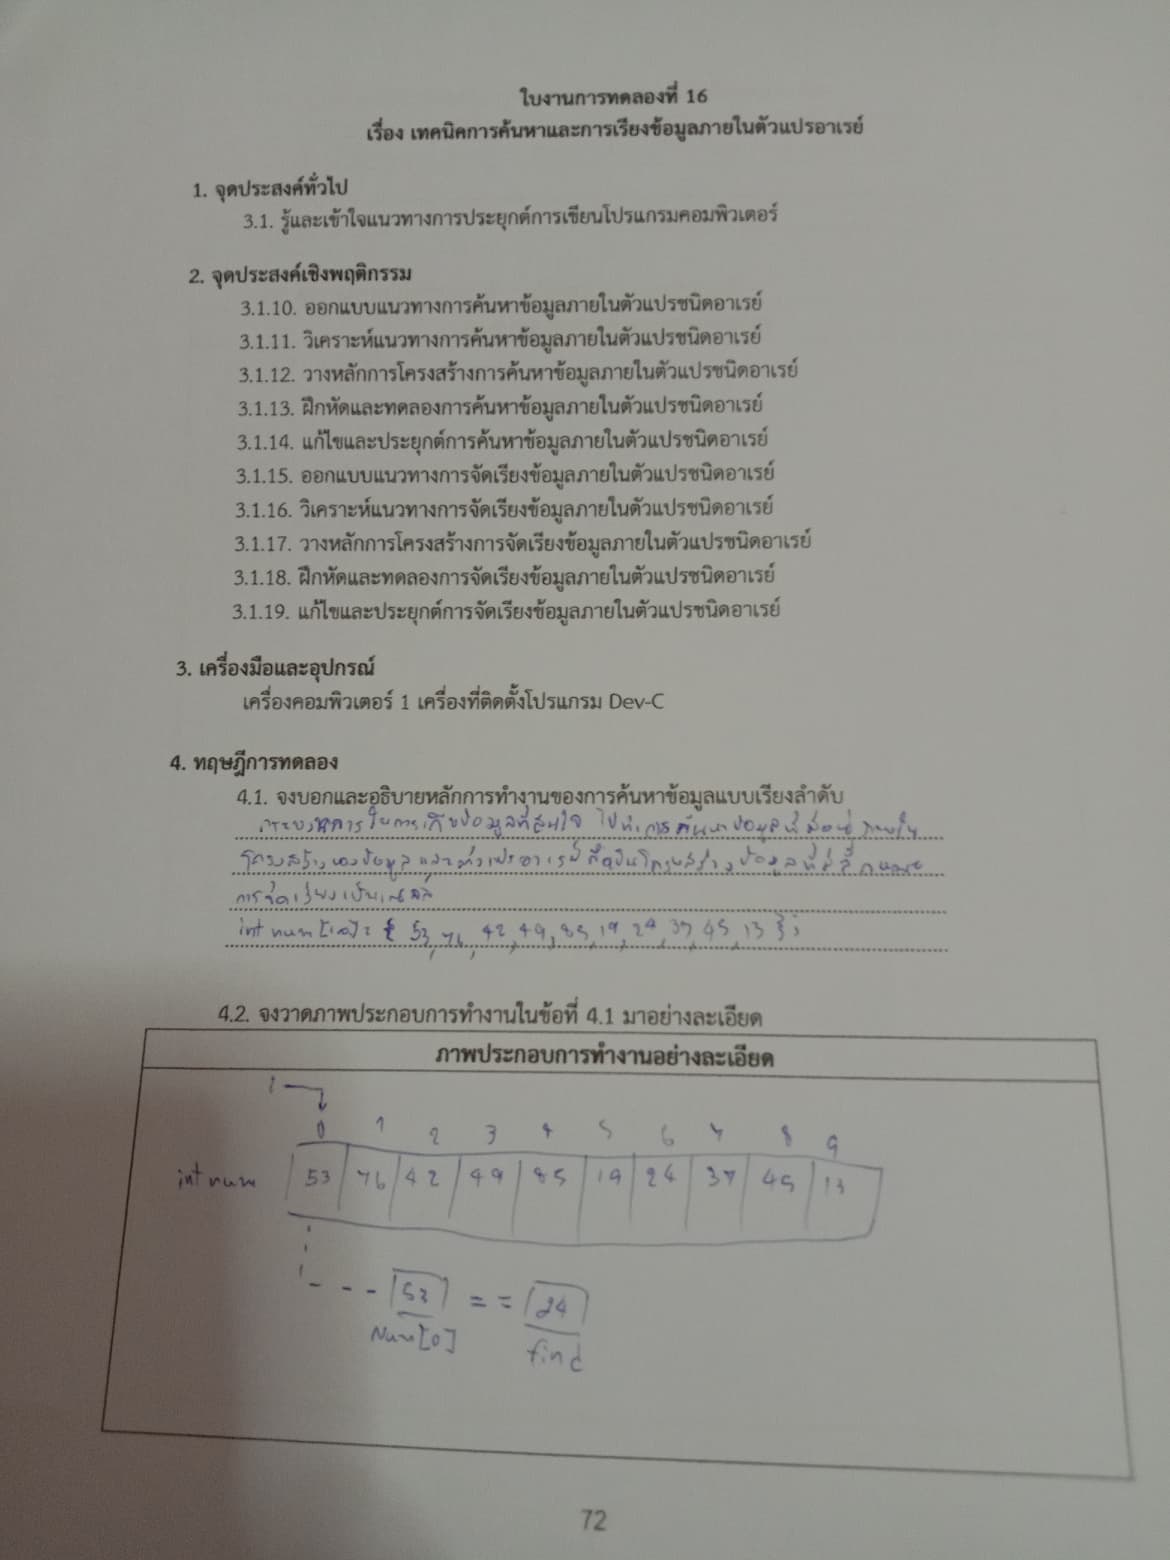 ใบงานการทดลองที่ 16
เรื่อง เทคนิคการค้นหาและการเรียงข้อมูลภายในตัวแปรอาเรย์
1. จุดประสงค์ทั่วไป
3.1. รู้และเข้าใจแนวทางการประยุกต์การเขียนโปรแกรมคอมพิวเตอร์
2. จุดประสงค์เชิงพฤติกรรม
3.1.10. ออกแบบแนวทางการค้นหาข้อมูลภายในตัวแปรชนิดอาเรย์
3.1.11. วิเคราะห์แนวทางการค้นหาข้อมูลภายในตัวแปรชนิดอาเรย์
3.1.12. วางหลักการโครงสร้างการค้นหาข้อมูลภายในตัวแปรชนิดอาเรย์
3.1.13. ฝึกหัดและทดลองการค้นหาข้อมูลภายในตัวแปรชนิดอาเรย์
3.1.14. แก้ไขและประยุกต์การค้นหาข้อมูลภายในตัวแปรชนิดอาเรย์
3.1.15. ออกแบบแนวทางการจัดเรียงข้อมูลภายในตัวแปรชนิดอาเรย์
3.1.16. วิเคราะห์แนวทางการจัดเรียงข้อมูลภายในตัวแปรชนิดอาเรย์
3.1.17. วางหลักการโครงสร้างการจัดเรียงข้อมูลภายในตัวแปรชนิดอาเรย์
3.1.18. ฝึกหัดและทดลองการจัดเรียงข้อมูลภายในตัวแปรชนิดอาเรย์
3.1.19. แก้ไขและประยุกต์การจัดเรียงข้อมูลภายในตัวแปรชนิดอาเรย์
3. เครื่องมือและอุปกรณ์
เครื่องคอมพิวเตอร์ 1 เครื่องที่ติดตั้งโปรแกรม Dev-C
4. ทฤษฎีการทดลอง
4.1. จงบอกและอธิบายหลักการทำงานของการค้นหาข้อมูลแบบเรียงลำดับ
กระบวนการในการเก็บข้อมูลที่สนใจ ไปทำการค้นหาข้อมูลที่มีอยู่ภายใน
โครงสร้างของข้อมูล และตัวแปรอาเรย์ โครงสร้างข้อมูลที่มีลักษณะ
int num[10] = { 53, 76, 42, 49, 85, 19, 24, 37, 45, 13 };
4.2. จงวาดภาพประกอบการทำงานในข้อที่ 4.1 มาอย่างละเอียด
ภาพประกอบการทำงานอย่างละเอียด
i
0 1 2 3 4 5 6 7 8 9
int num 53 76 42 49 85 19 24 37 45 13
53 == 24
Num[0] find
72